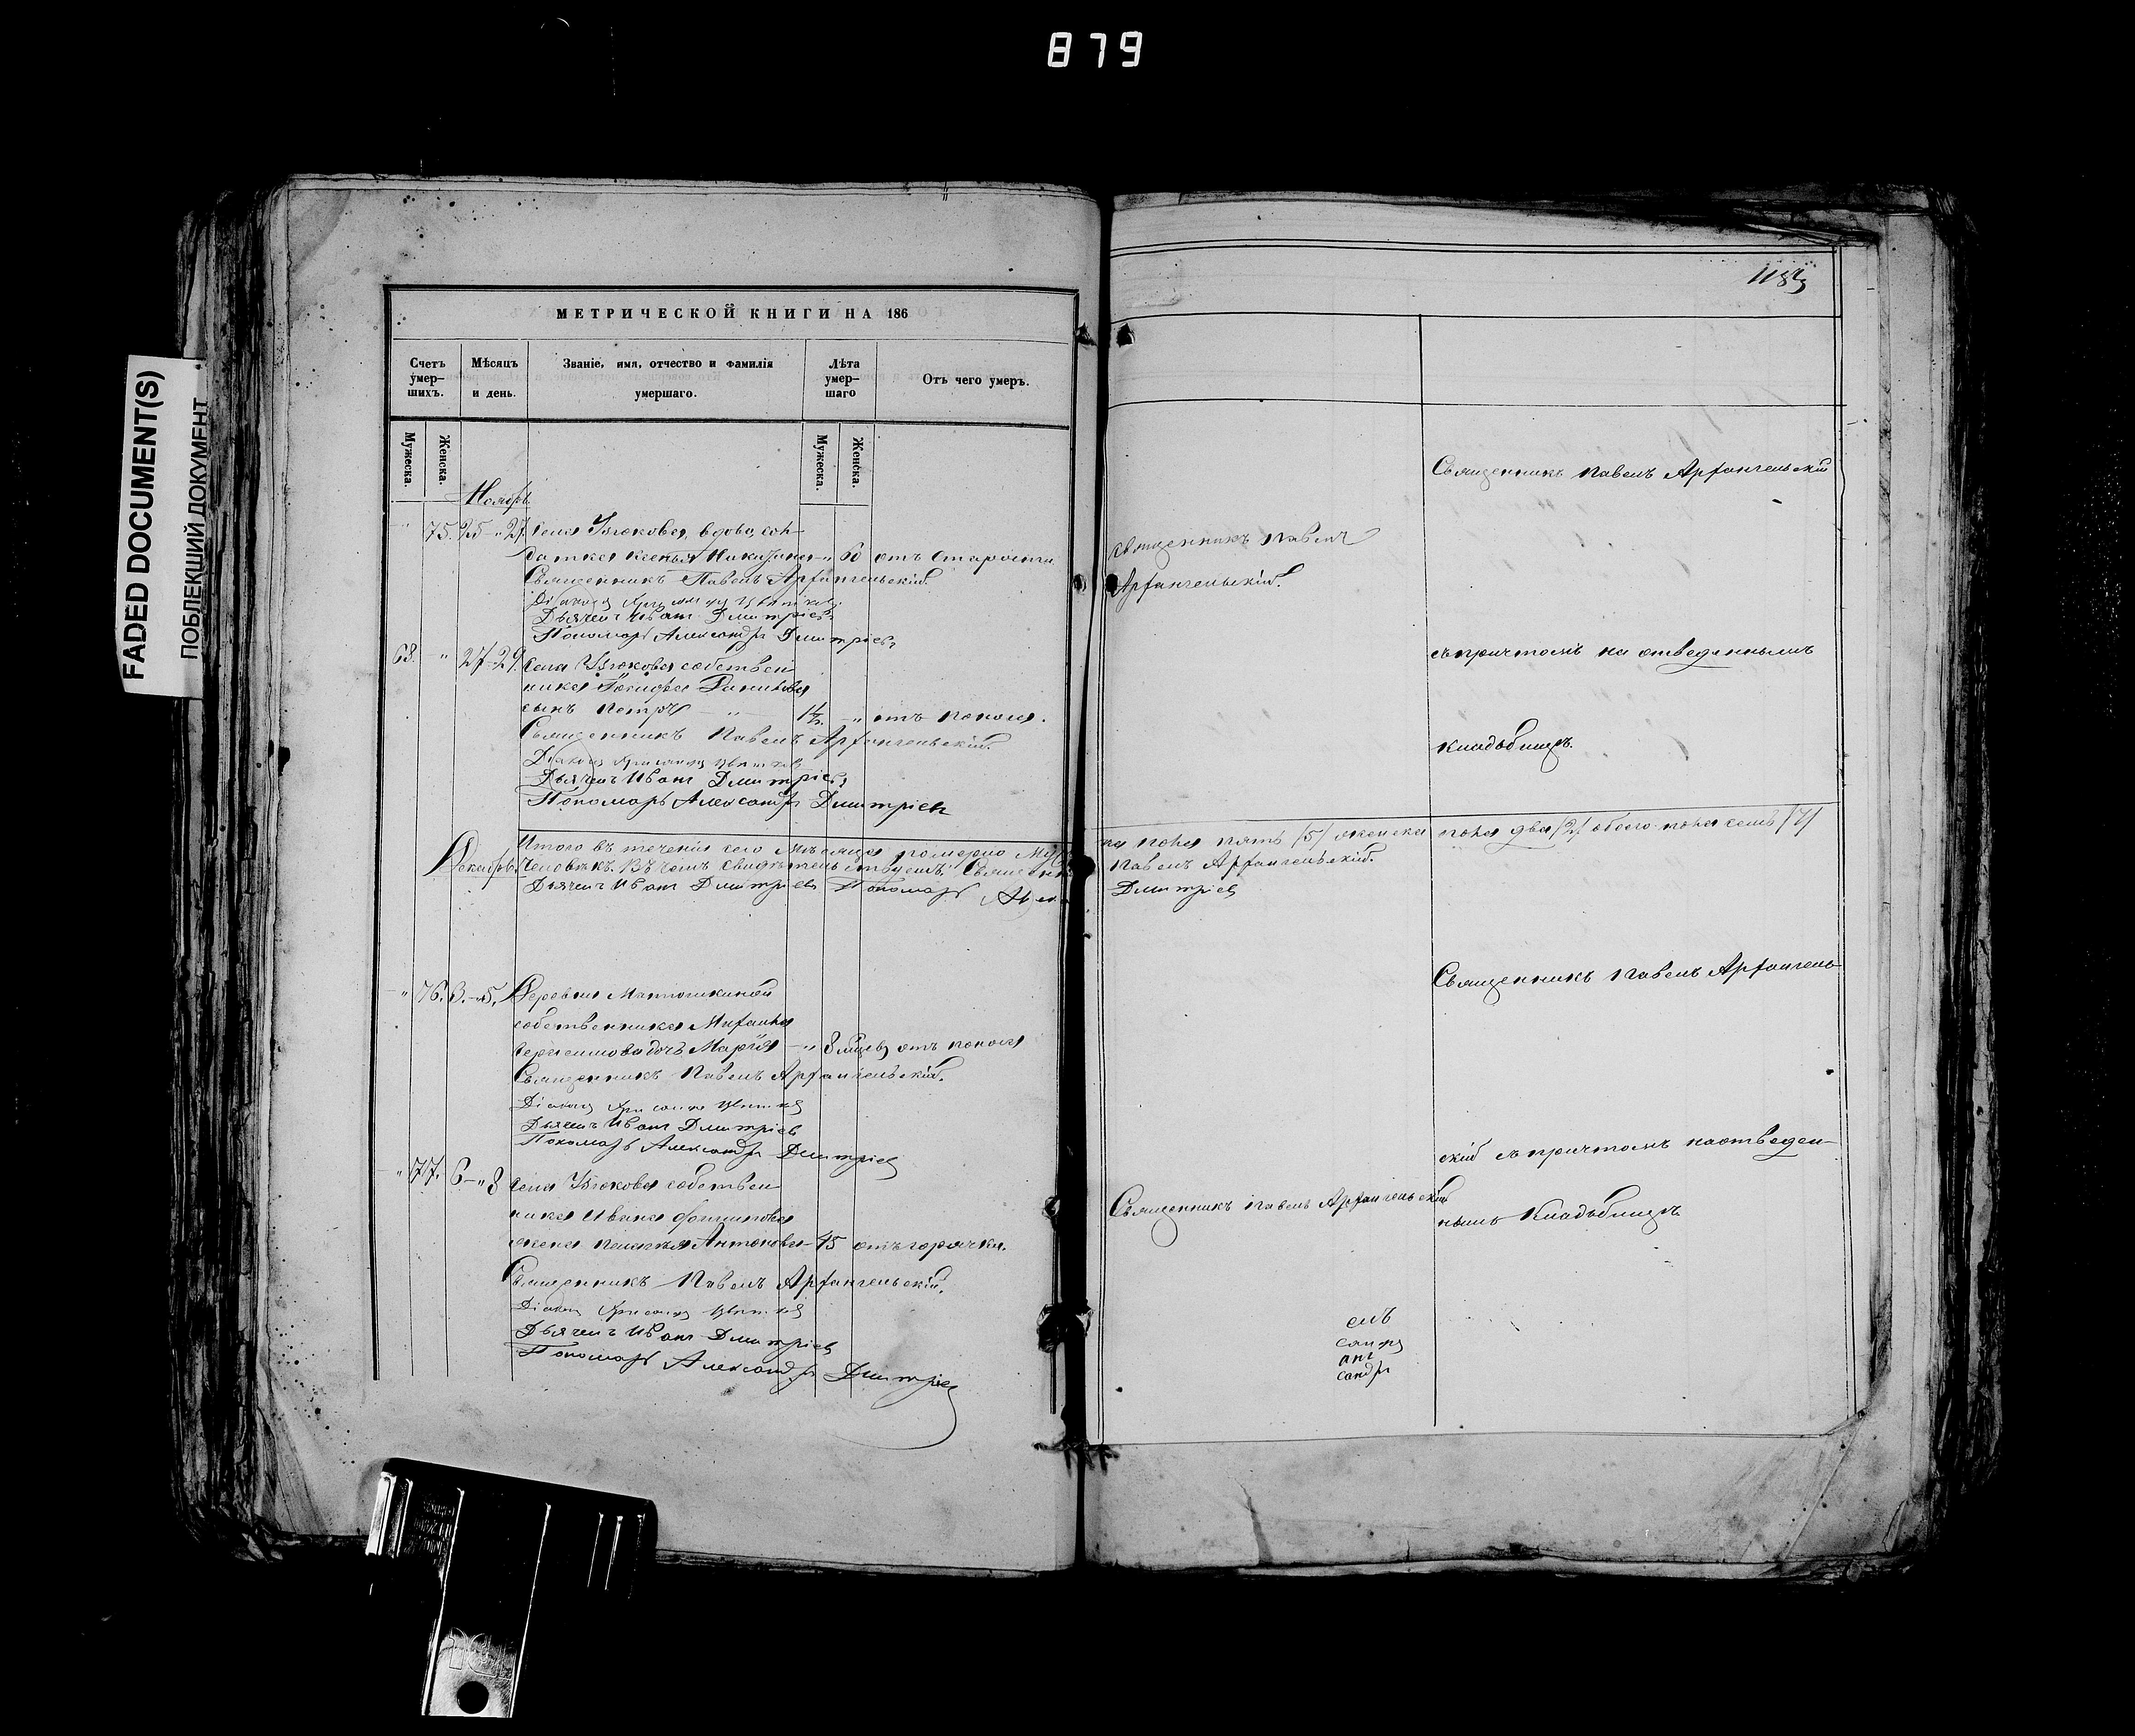 879
FADED DOCUMENT(S)
ПОБЛЕКШИЙ ДОКУМЕНТ
МЕТРИЧЕСКОЙ КНИГИ НА 186
Счетъ умер-шихъ.
Мѣсяцъ и день.
Званіе, имя, отчество и фамилія умершаго.
Лѣта умер-шаго
Отъ чего умеръ.
Мужеска.
Женска.
Мужеска.
Женска.
Ноябрь
" 75. 25 - 27. Села Узюкова, вдова, сол-
датка Ксенья Никифорова " 60 отъ старости
Священникъ Павелъ Архангельскій.
Діаконъ
Дьячекъ Иванъ Дмитріевъ
Пономарь Александръ Дмитріевъ
68. " 27-29. Села Узюкова собствен-
ника Данилова
сынъ Петръ " 1½. " отъ поноса.
Священникъ Павелъ Архангельскій.
Діаконъ
Дьячекъ Иванъ Дмитріевъ
Пономарь Александръ Дмитріевъ
Итого въ теченіи сего мѣсяца померло Му
Декабрь. Человѣкъ. Въ чемъ свидѣтельствуемъ: Священ
Дьячекъ Иванъ Дмитріевъ Пономарь
" 76. 3.-5. Деревни
собственника Михаила
дочь Марія " 8 мѣсяц. отъ поноса
Священникъ Павелъ Архангельскій.
Діаконъ
Дьячекъ Иванъ Дмитріевъ
Пономарь Александръ Дмитріевъ
" 77. 6-" 8 Села Узюкова собствен-
ника Ивана
жена Пелагея Антонова 45 отъ горячки.
Священникъ Павелъ Архангельскій.
Діаконъ
Дьячекъ Иванъ Дмитріевъ
Пономарь Александръ Дмитріевъ
Священникъ Павелъ Архангельскій
Священникъ Павелъ
Архангельскій.
съ причтомъ на отведенномъ
кладбищѣ.
ка пола пять /5/ женска пола два /2/ обоего пола семь /7/
Павелъ Архангельскій.
Дмитріевъ
Священникъ Павелъ Архангель-
скій съ причтомъ на отведен-
Священникъ Павелъ Архангельскій
номъ Кладбищѣ
елъ
санфъ
анъ
сандръ